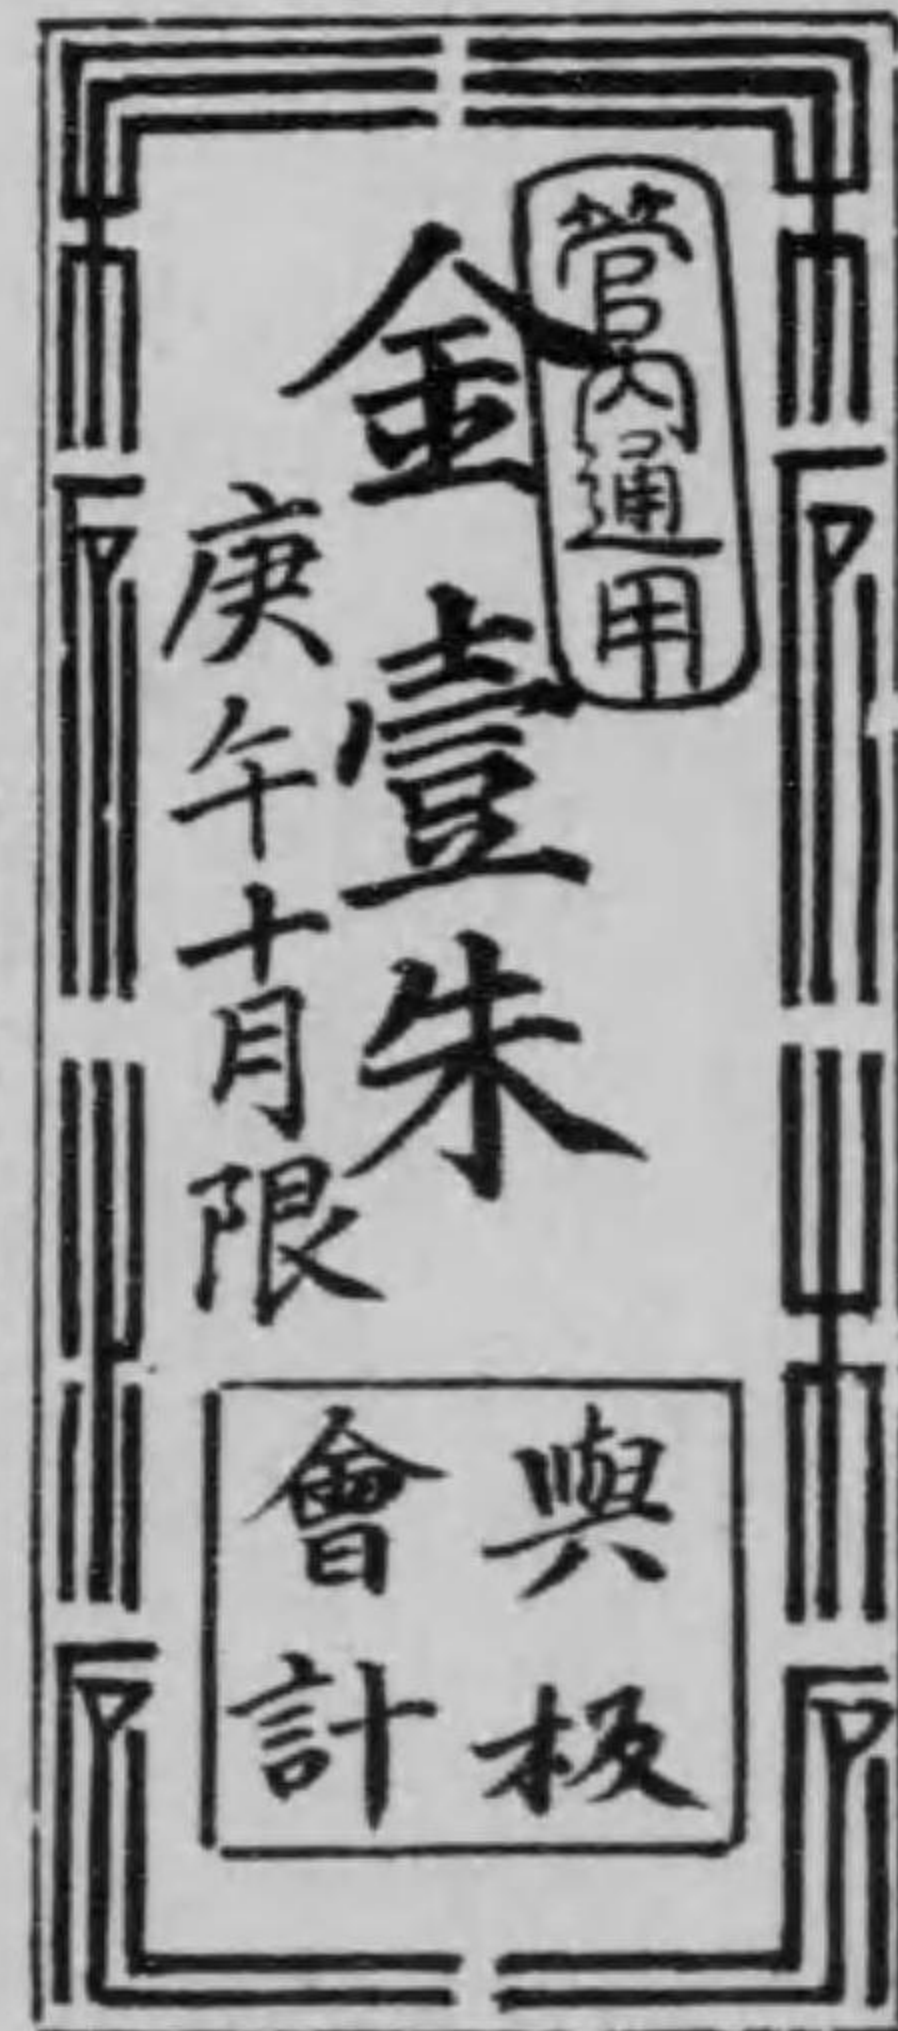 管内通用
金壹朱
庚午十月限
與板
會計